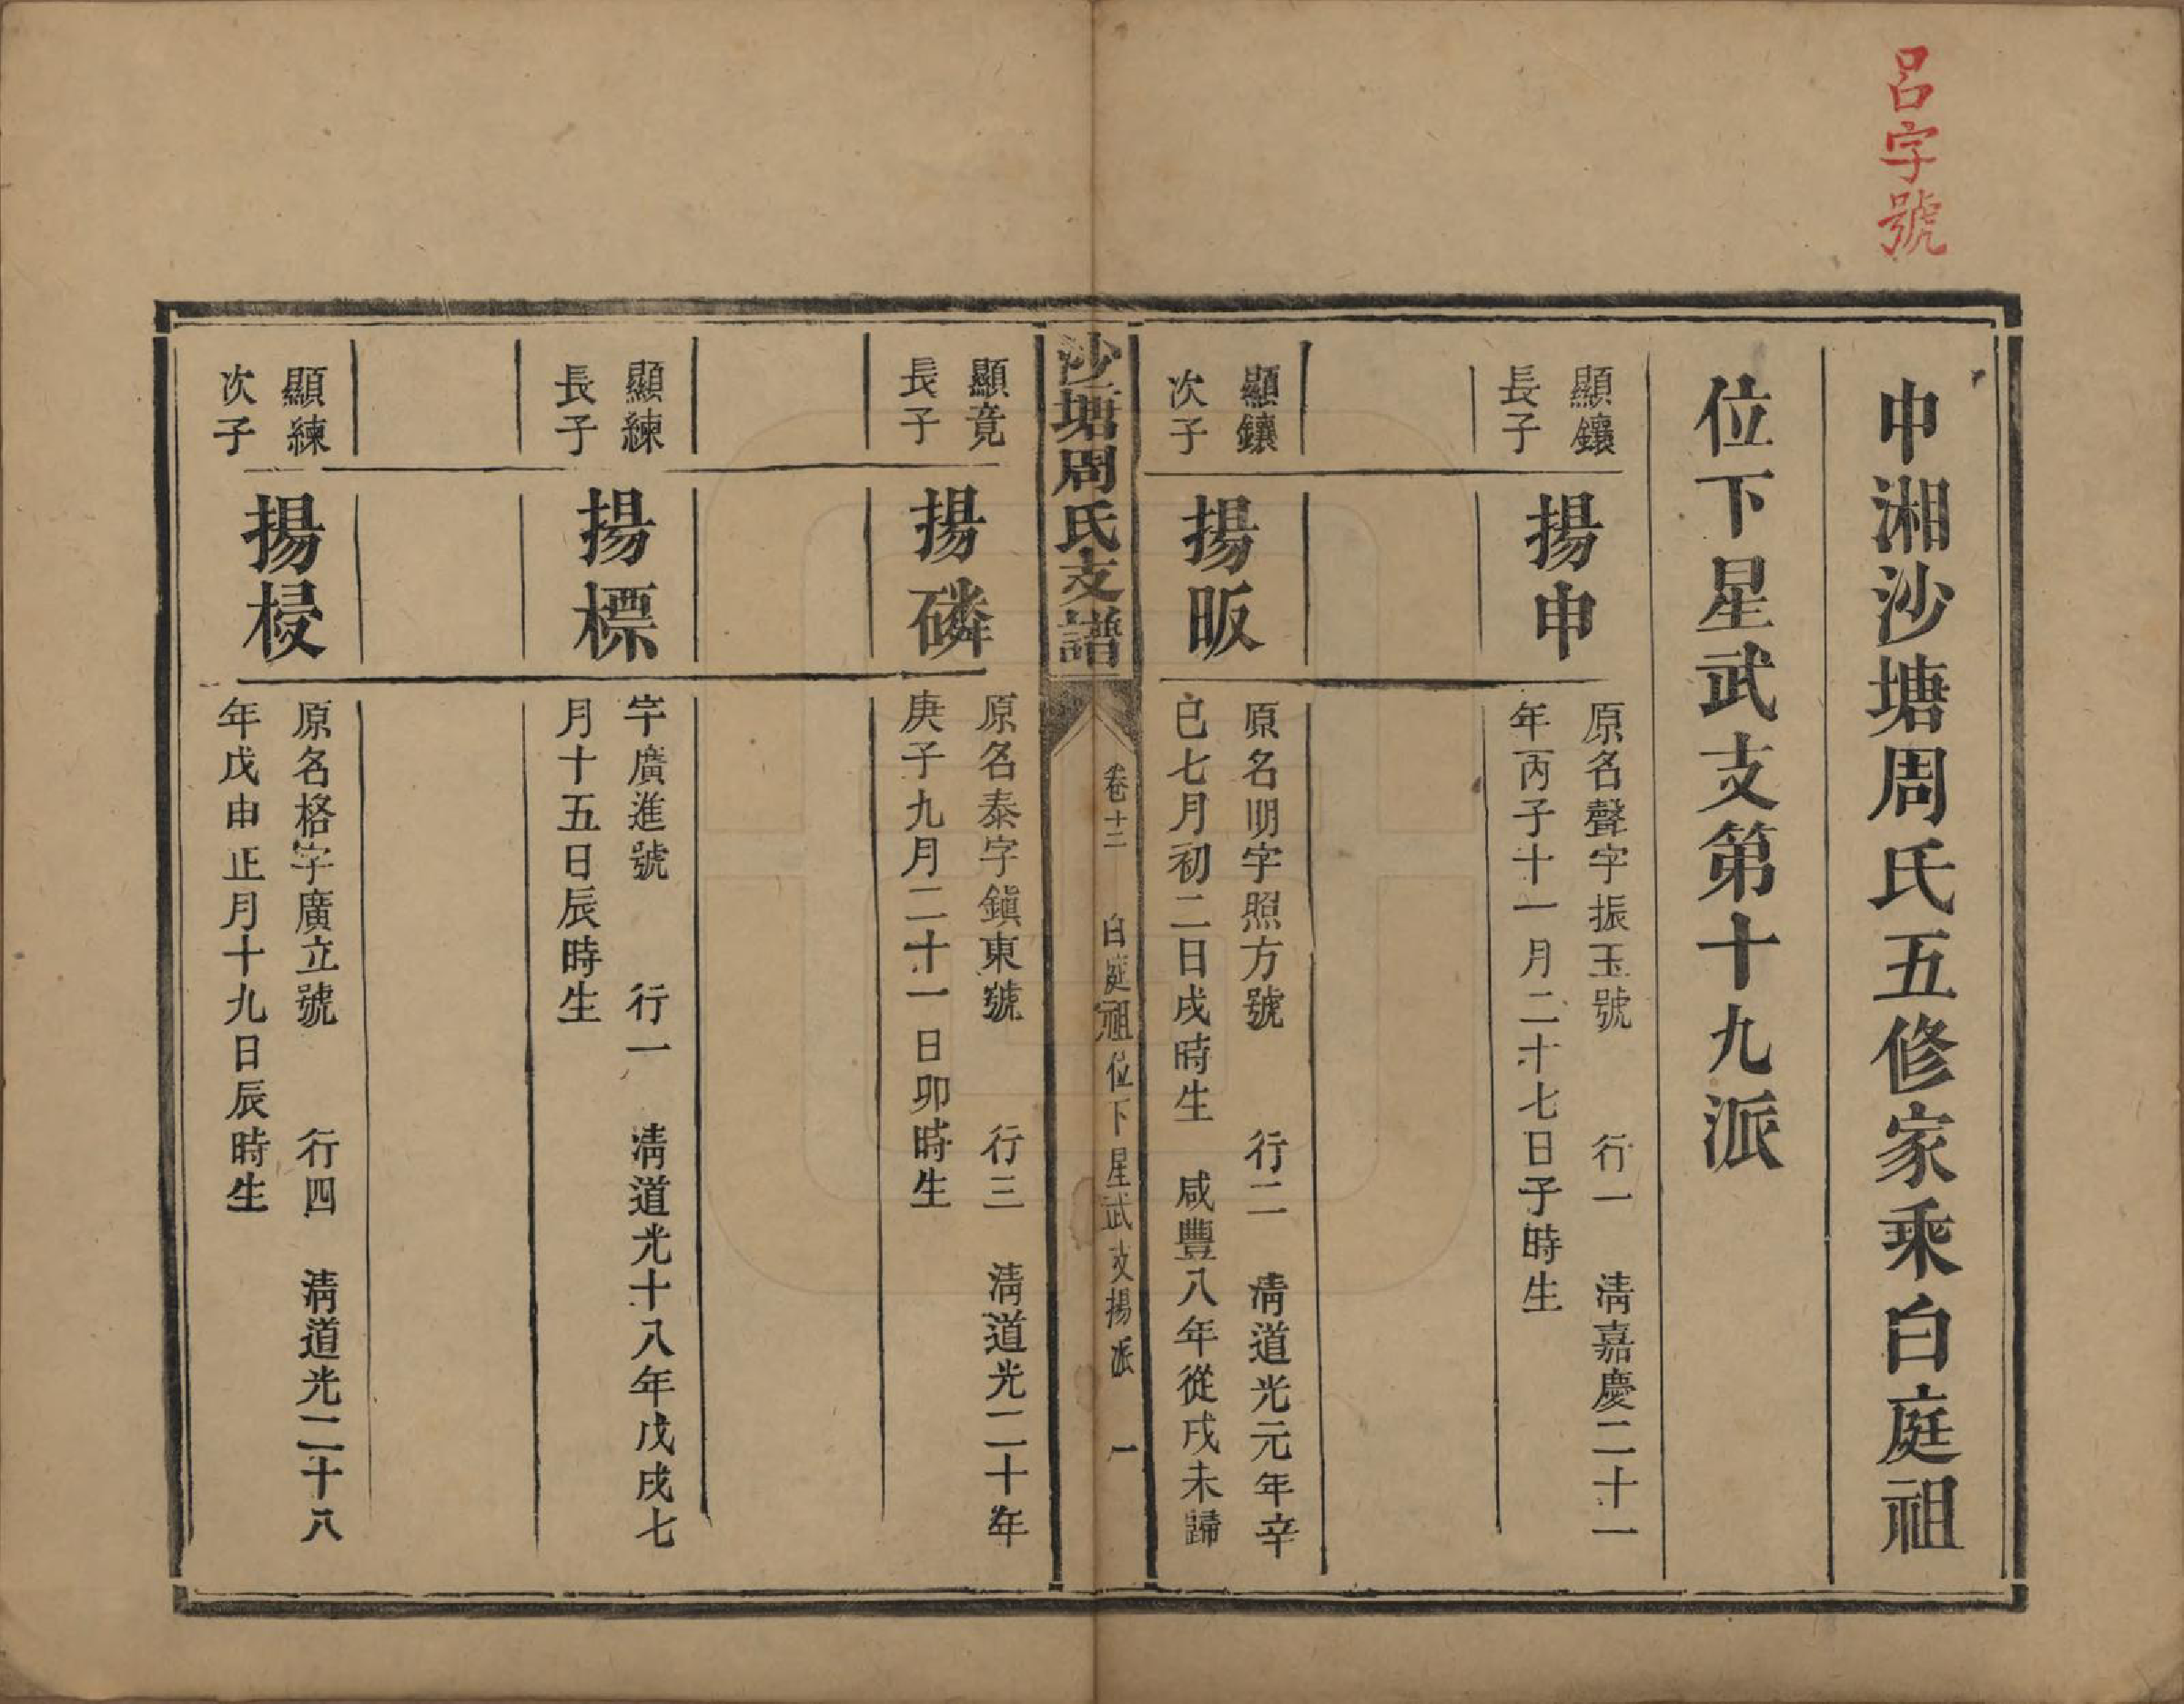 呂字號
中湘沙塘周氏五修家乘白庭祖
位下星武支第十九派
顯鑲
長子
揚申
原名聲字振玉號　行一　清嘉慶二十一
年丙子十一月二十七日子時生
顯鑲
次子
揚昄
原名明字照方號　行二　清道光元年辛
巳七月初二日戌時生　咸豐八年從戎未歸
沙塘周氏支譜
卷十二　白庭祖位下星武支揚派　一
顯竟
長子
揚磷
原名泰字鎮東號　行三　清道光二十年
庚子九月二十一日卯時生
顯練
長子
揚標
字廣進號　行一　清道光十八年戊戌七
月十五日辰時生
顯練
次子
揚梫
原名格字廣立號　行四　清道光二十八
年戊申正月十九日辰時生